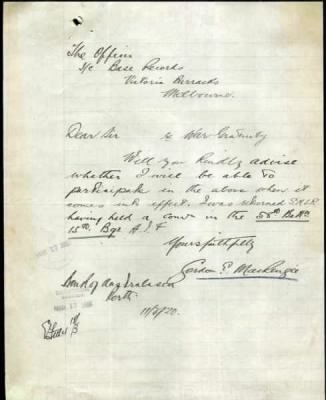 The Officer
i/c Base Records
Victoria Barracks
Melbourne.
Dear Sir
re War Gratuity
Will you kindly advise
whether I will be able to
participate in the above when it
comes into effect. I was returned
having held a comn in the 55th Battn
15th. Bge A I F
Yours faithfully
Gordon S MacKenzie
Bank of Australasia
Perth
11/3/20.